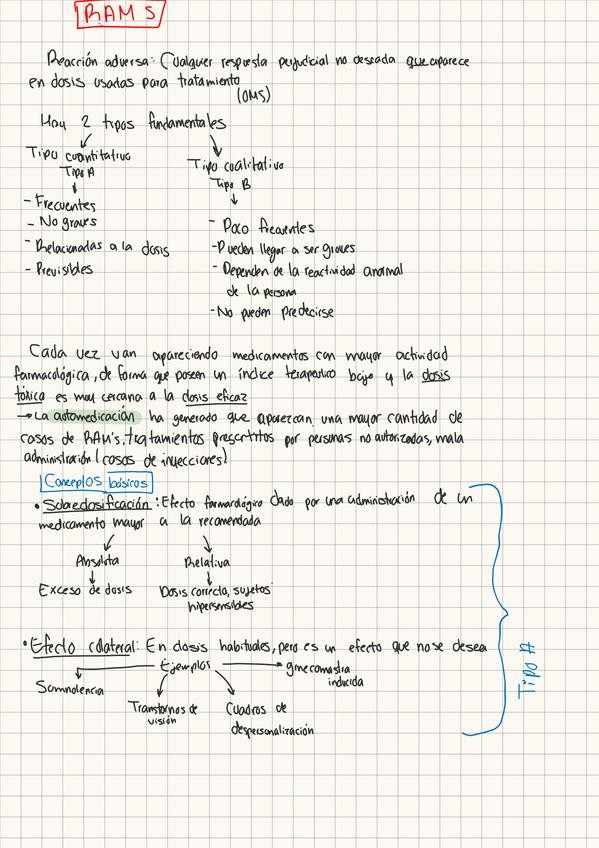 RAM S
Reacción adversa: Cualquier respuesta perjudicial no deseada que aparece
en dosis usadas para tratamiento
(OMS)
Hay 2 tipos fundamentales
Tipo cuantitativo
Tipo A
- Frecuentes
- No graves
- Relacionadas a la dosis
- Previsibles
Tipo cualitativo
Tipo B
- Poco frecuentes
- Pueden llegar a ser graves
- Dependen de la reactividad anormal
de la persona
- No pueden predecirse
Cada vez van apareciendo medicamentos con mayor actividad
farmacológica, de forma que poseen un índice terapeutico bajo y la dosis
tóxica es muy cercana a la dosis eficaz
→ La automedicación ha generado que aparezcan una mayor cantidad de
casos de RAM's, tratamientos prescritos por personas no autorizadas, mala
administración (casos de inyecciones)
Conceptos básicos
• Sobredosificación: Efecto farmacológico dado por una administración de un
medicamento mayor a la recomendada
Absoluta
Exceso de dosis
Relativa
Dosis correcta, sujetos
hipersensibles
• Efecto colateral: En dosis habituales, pero es un efecto que no se desea
Ejemplos
Somnolencia
Transtornos de
visión
Cuadros de
despersonalización
ginecomastia
inducida
Tipo A